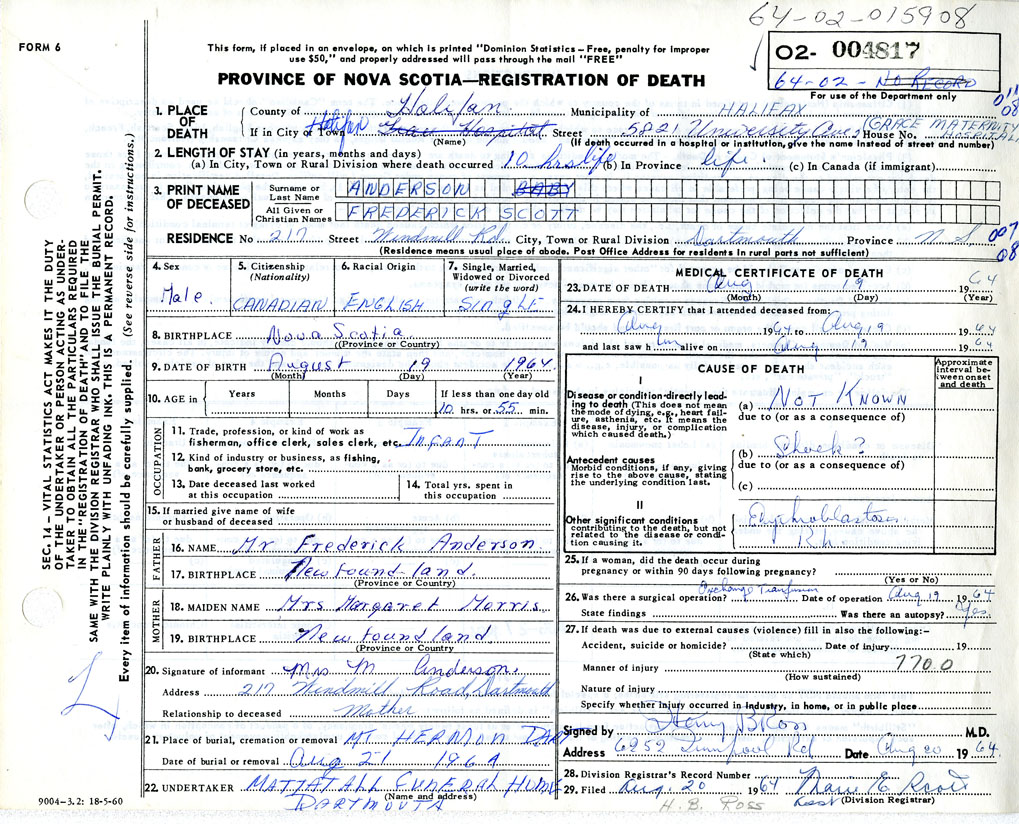 64-02-015908
FORM 6
This form, if placed in an envelope, on which is printed "Dominion Statistics – Free, penalty for improper
use $50," and properly addressed will pass through the mail "FREE"
PROVINCE OF NOVA SCOTIA—REGISTRATION OF DEATH
02- 004817
64-02- No RECORD
For use of the Department only
1. PLACE OF DEATH
County of Halifax Municipality of HALIFAX
If in City or Town Halifax Hospital Street 5821 University Ave, House No. (GRACE MATERNITY HOSPITAL)
(Name) (If death occurred in a hospital or institution, give the name instead of street and number)
2. LENGTH OF STAY (in years, months and days)
(a) In City, Town or Rural Division where death occurred 10 hrs life (b) In Province life. (c) In Canada (if immigrant)
3. PRINT NAME OF DECEASED
Surname or Last Name ANDERSON BABY
All Given or Christian Names FREDERICK SCOTT
RESIDENCE No 217 Street Windmill Rd. City, Town or Rural Division Dartmouth Province N S
007
08
(Residence means usual place of abode. Post Office Address for residents in rural parts not sufficient)
4. Sex
Male.
5. Citizenship (Nationality)
CANADIAN
6. Racial Origin
ENGLISH
7. Single, Married, Widowed or Divorced (write the word)
SINGLE
8. BIRTHPLACE Nova Scotia
(Province or Country)
9. DATE OF BIRTH August 19 1964
(Month) (Day) (Year)
10. AGE in
Years Months Days If less than one day old
10 hrs. or 55 min.
OCCUPATION
11. Trade, profession, or kind of work as
fisherman, office clerk, sales clerk, etc. Infant
12. Kind of industry or business, as fishing,
bank, grocery store, etc.
13. Date deceased last worked
at this occupation
14. Total yrs. spent in
this occupation
15. If married give name of wife
or husband of deceased
FATHER
16. NAME Mr Frederick Anderson
17. BIRTHPLACE Newfound-land.
(Province or Country)
MOTHER
18. MAIDEN NAME Mrs Margaret Morris
19. BIRTHPLACE Newfoundland
(Province or Country
20. Signature of informant Mrs M Anderson.
Address 217 Windmill Road, Dartmouth
Relationship to deceased Mother
21. Place of burial, cremation or removal MT HERMON DART
Date of burial or removal Aug 21 1964
22. UNDERTAKER MATTATALL FUNERAL HOME
(Name and address)
DARTMOUTH
MEDICAL CERTIFICATE OF DEATH
23. DATE OF DEATH Aug 19 1964
(Month) (Day) (Year)
24. I HEREBY CERTIFY that I attended deceased from:
Aug 1964 to Aug 19 1964
and last saw him alive on Aug 19 1964
CAUSE OF DEATH
Approximate interval between onset and death
I
Disease or condition directly leading to death (This does not mean
the mode of dying, e.g., heart failure, asthenia, etc. It means the
disease, injury, or complication
which caused death.)
(a) NOT KNOWN
due to (or as a consequence of)
Antecedent causes
Morbid conditions, if any, giving
rise to the above cause, stating
the underlying condition last.
(b) Shock?
due to (or as a consequence of)
(c)
II
Other significant conditions
contributing to the death, but not
related to the disease or condition causing it.
Erythroblastosis
Rh
25. If a woman, did the death occur during
pregnancy or within 90 days following pregnancy?
(Yes or No)
26. Was there a surgical operation? Exchange Transfusion Date of operation Aug 19 1964
State findings Was there an autopsy? Yes
27. If death was due to external causes (violence) fill in also the following:–
Accident, suicide or homicide? Date of injury 19
(State which)
Manner of injury 7700
(How sustained)
Nature of injury
Specify whether injury occurred in industry, in home, or in public place
Signed by Henry B Ross M.D.
Address 6252 Rd Date Aug 20 1964
28. Division Registrar's Record Number
29. Filed Aug. 20 1964
(Division Registrar)
H. B. ROSS
SEC. 14 – VITAL STATISTICS ACT MAKES IT THE DUTY
OF THE UNDERTAKER OR PERSON ACTING AS UNDERTAKER TO OBTAIN ALL THE PARTICULARS REQUIRED
IN THE "REGISTRATION OF DEATH" AND TO FILE THE
SAME WITH THE DIVISION REGISTRAR WHO SHALL ISSUE THE BURIAL PERMIT.
WRITE PLAINLY WITH UNFADING INK. THIS IS A PERMANENT RECORD.
Every item of information should be carefully supplied. (See reverse side for instructions.)
9004–3.2: 18-5-60